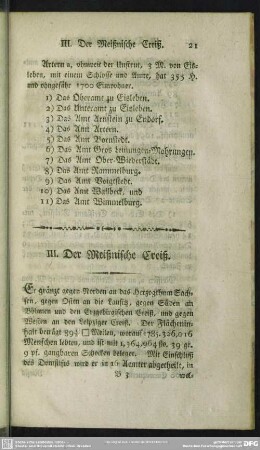 III. Der Meißnische Creiß. 21
Artern a, ohnweit der Unstrut, 3 M. von Eis-
leben, mit einem Schlosse und Amte, hat 355 H.
und ohngefähr 1700 Einwohner.
1) Das Oberamt zu Eisleben.
2) Das Unteramt zu Eisleben.
3) Das Amt Arnstein zu Endorf.
4) Das Amt Artern.
5) Das Amt Bornstedt.
6) Das Amt Groß leinungen-Mohrungen.
7) Das Amt Ober-Wiederstädt.
8) Das Amt Rammelburg.
9) Das Amt Voigtstedt.
10) Das Amt Wallbeck, und
11) Das Amt Wimmelburg.
III. Der Meißnische Creiß.
Er gränzt gegen Norden an das Herzogthum Sach-
sen, gegen Osten an die Lausitz, gegen Süden an
Böhmen und den Erzgebirgischen Creiß, und gegen
Westen an den Leipziger Creiß. Der Flächenin-
halt beträgt 89¾ □ Meilen, worauf 1785. 326,016
Menschen lebten, und ist mit 1,364,964 ßn. 39 gr.
9 pf. gangbaren Schocken beleget. Mit Einschluß
des Domstifts wird er in 16 Aemter abgetheilt, in
B 3 wel-